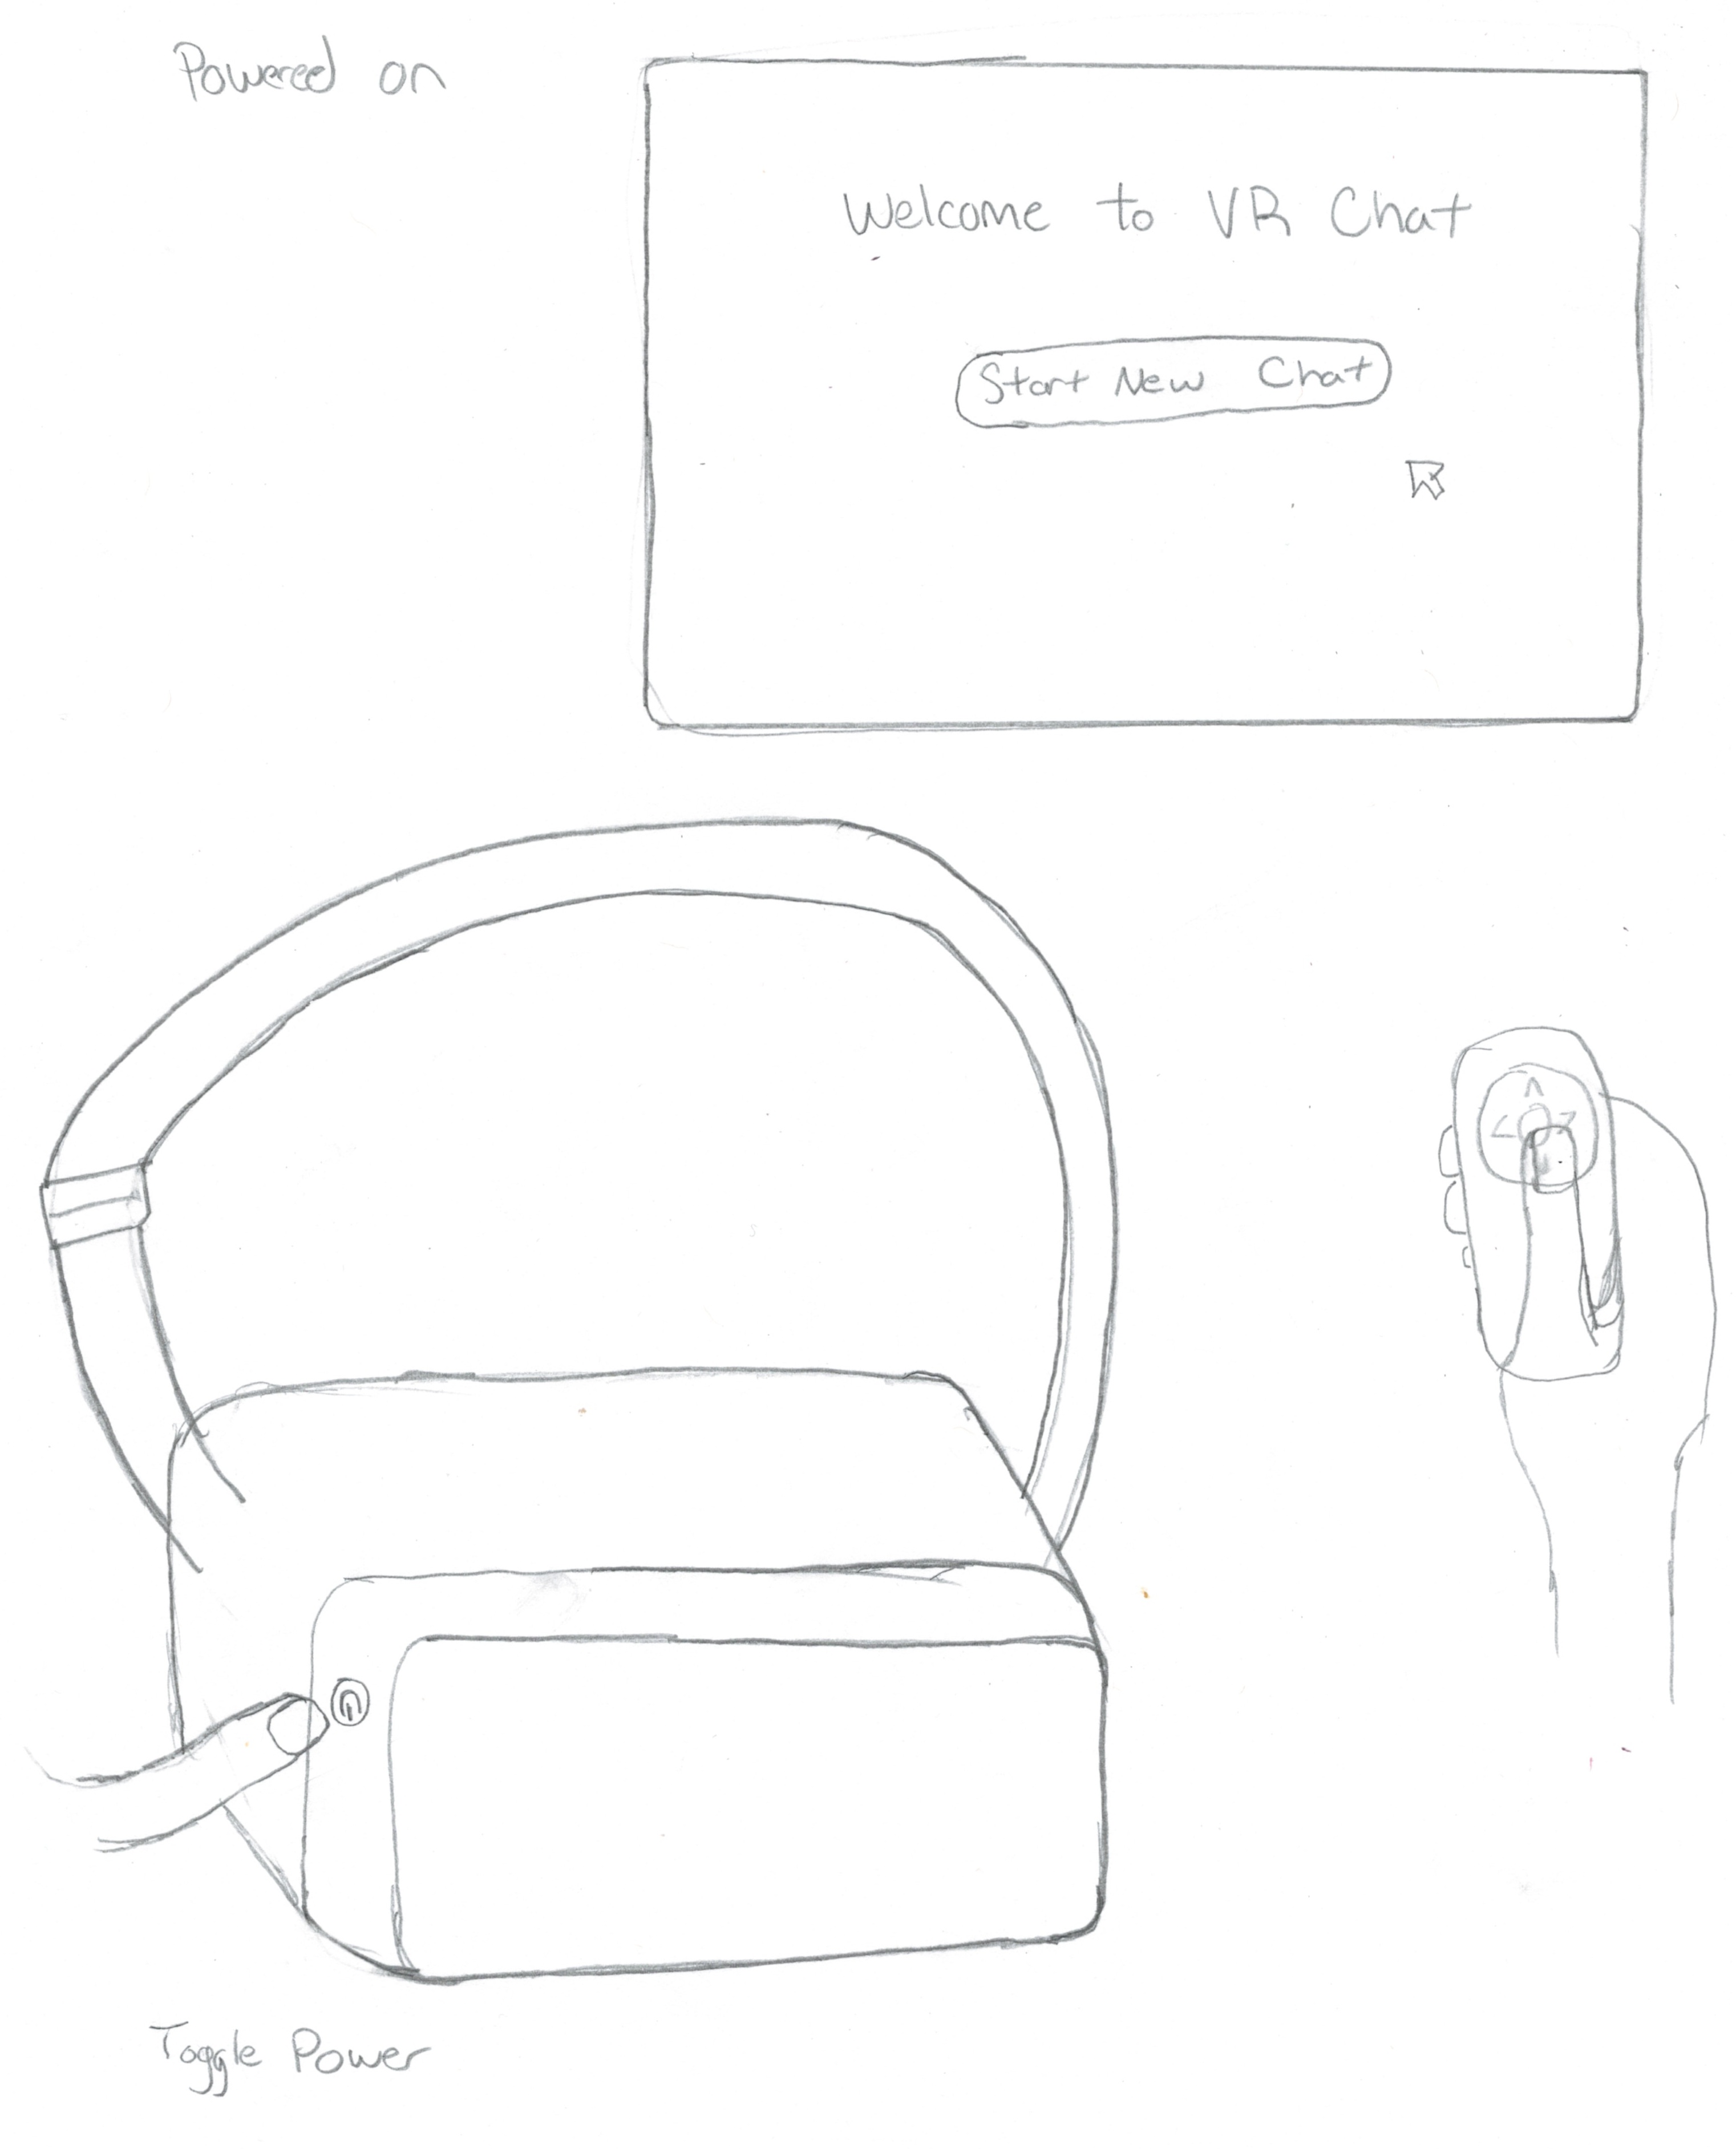 Powered on
Welcome to VR Chat
Start New Chat
Toggle Power